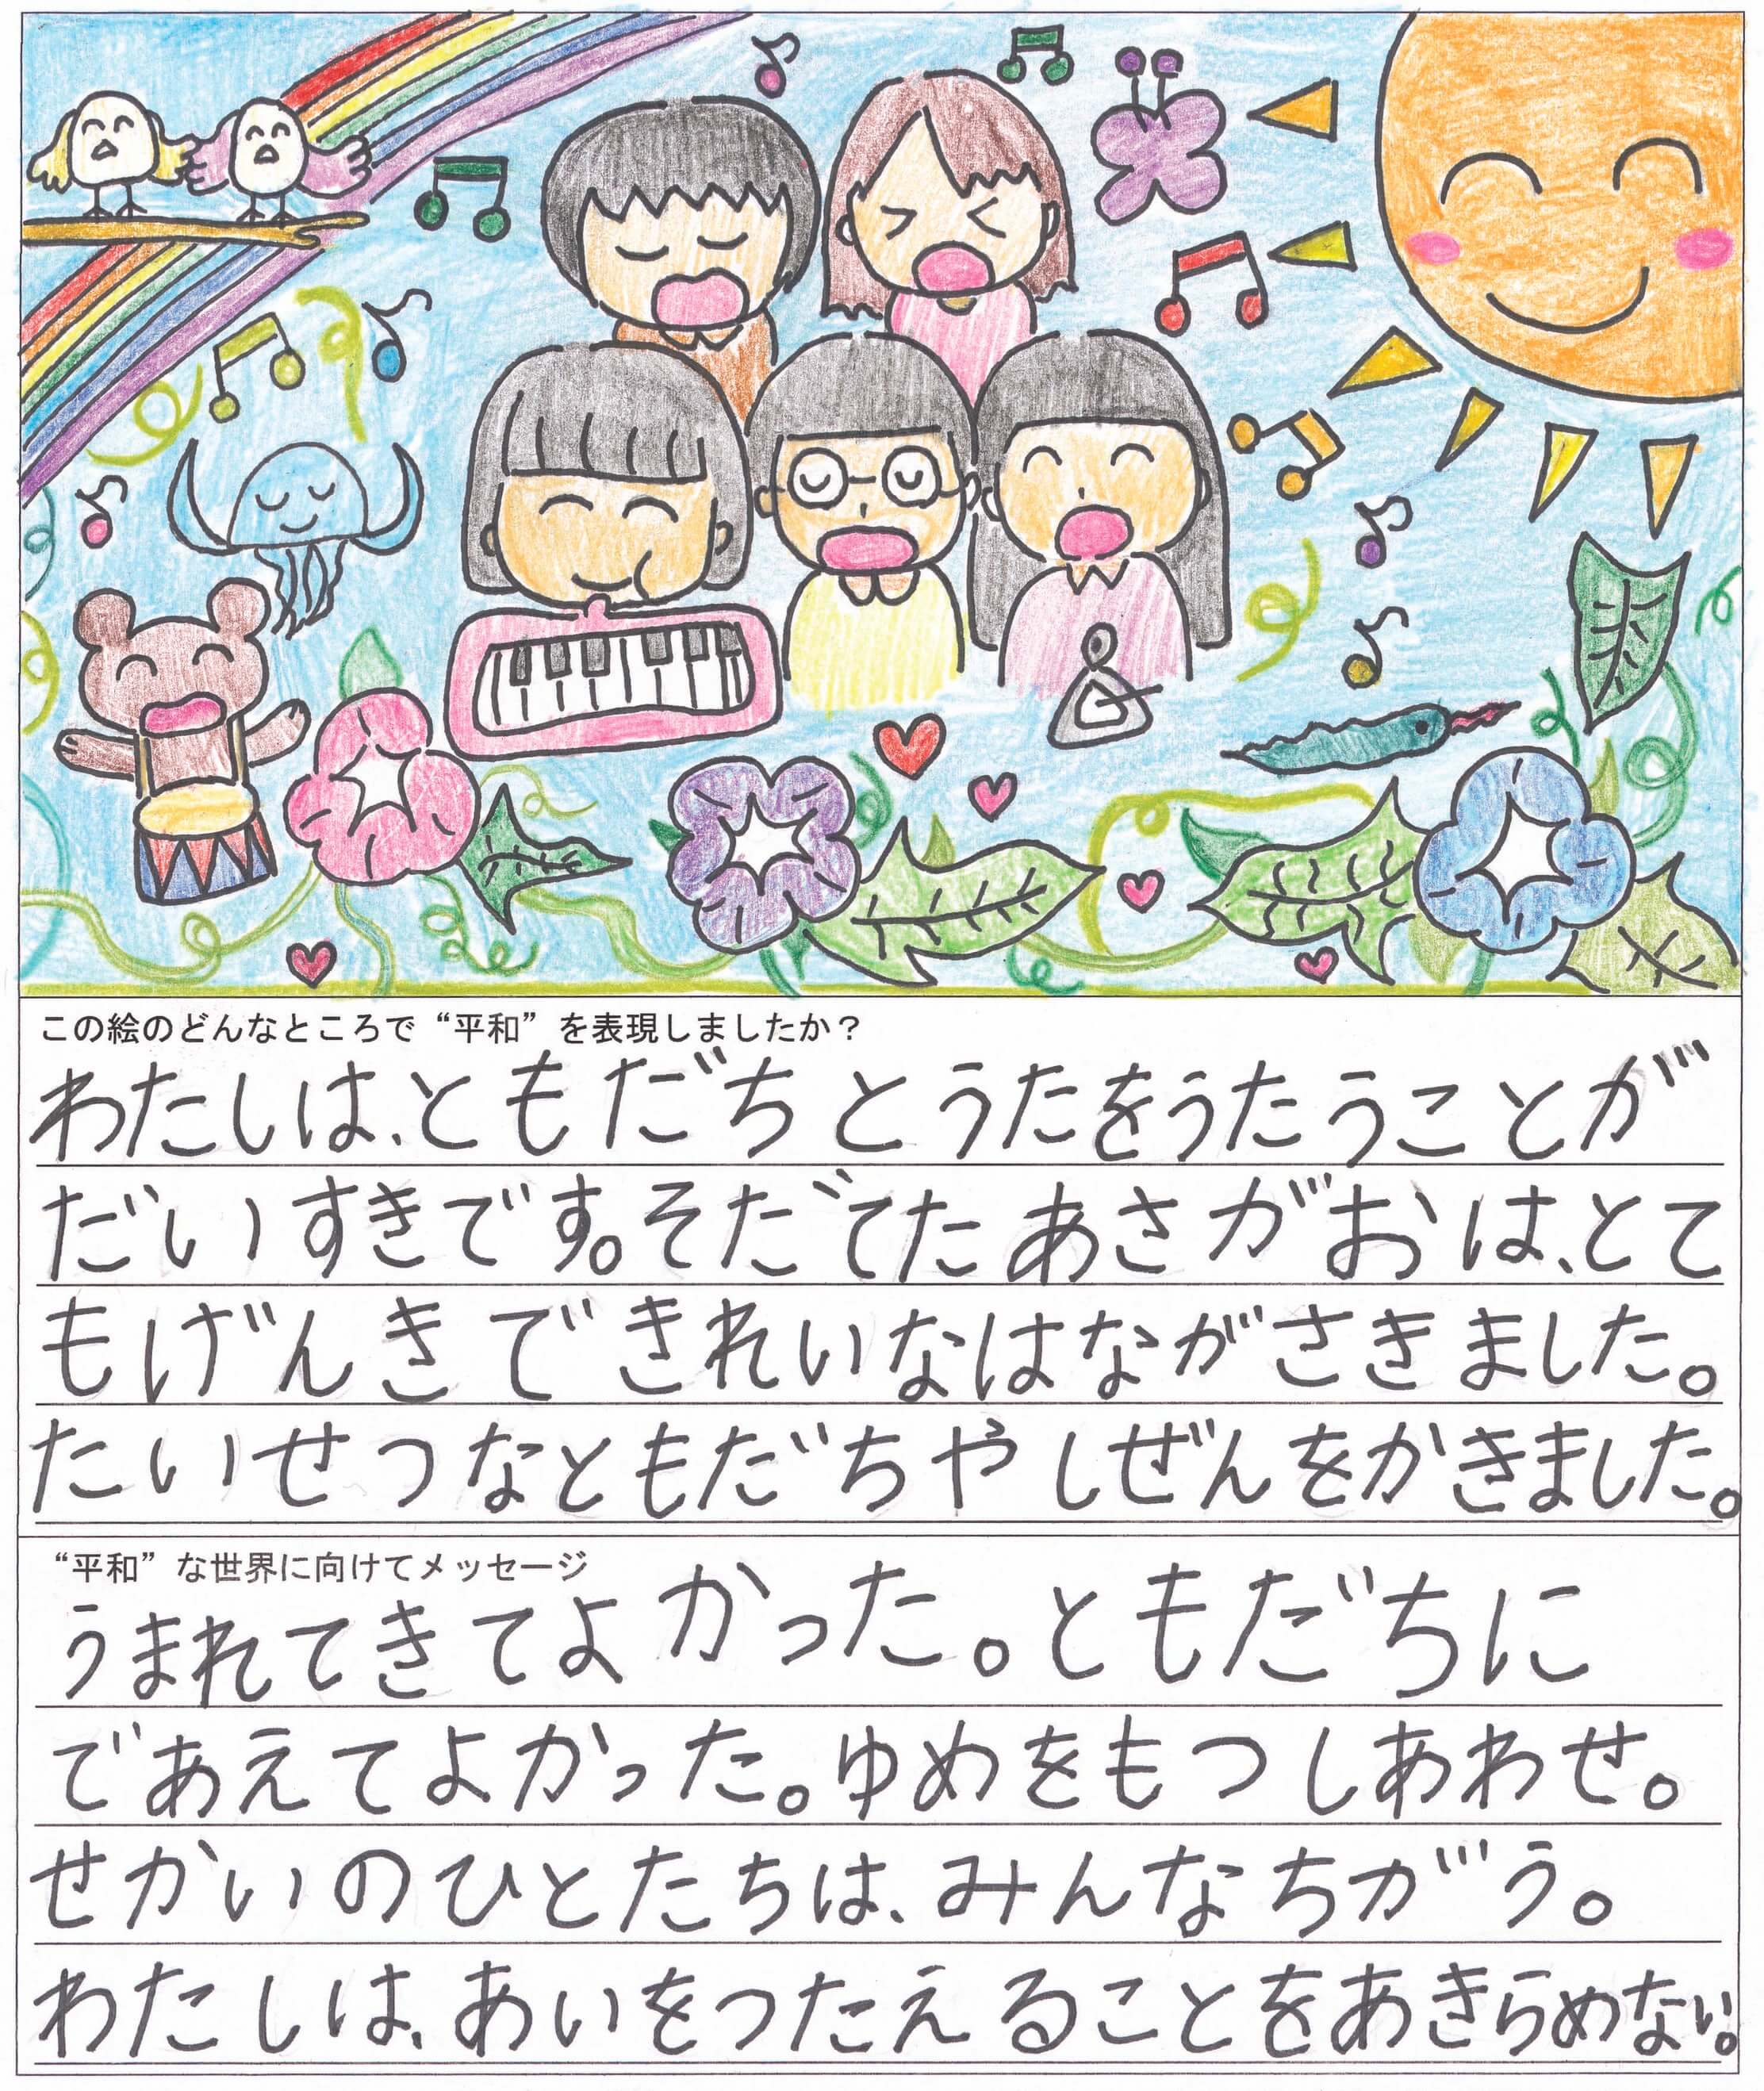 この絵のどんなところで“平和”を表現しましたか？
わたしは、ともだちとうたをうたうことが
だいすきです。そだてたあさがおは、とて
もげんきできれいなはながさきました。
たいせつなともだちやしぜんをかきました。
“平和”な世界に向けてメッセージ
うまれてきてよかった。ともだちに
であえてよかった。ゆめをもつしあわせ。
せかいのひとたちは、みんなちがう。
わたしは、あいをつたえることをあきらめない。